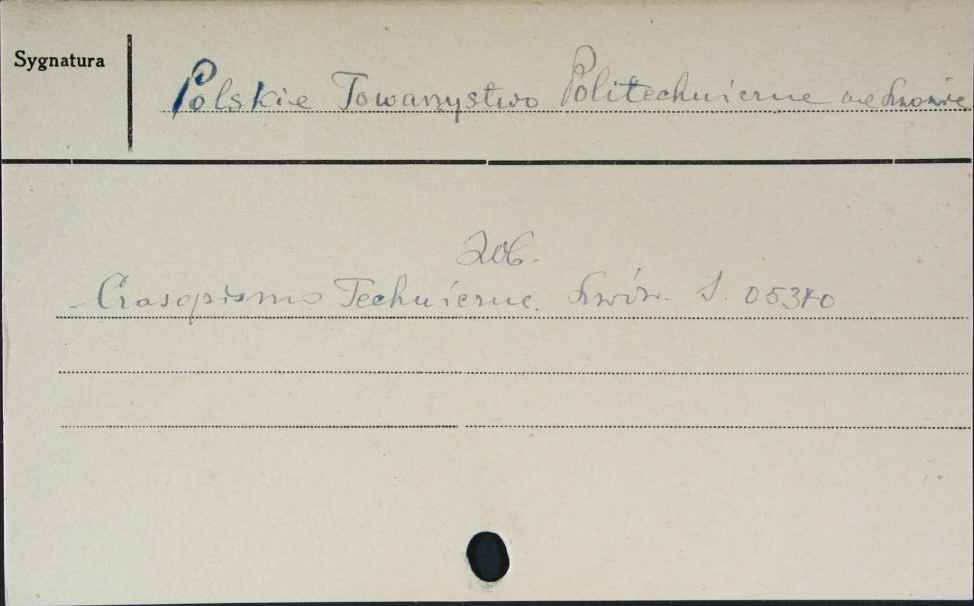 Sygnatura
Polskie Towarzystwo Politechniczne we Lwowie
Zob.
- Czasopismo Techniczne. Lwów. S. 05340